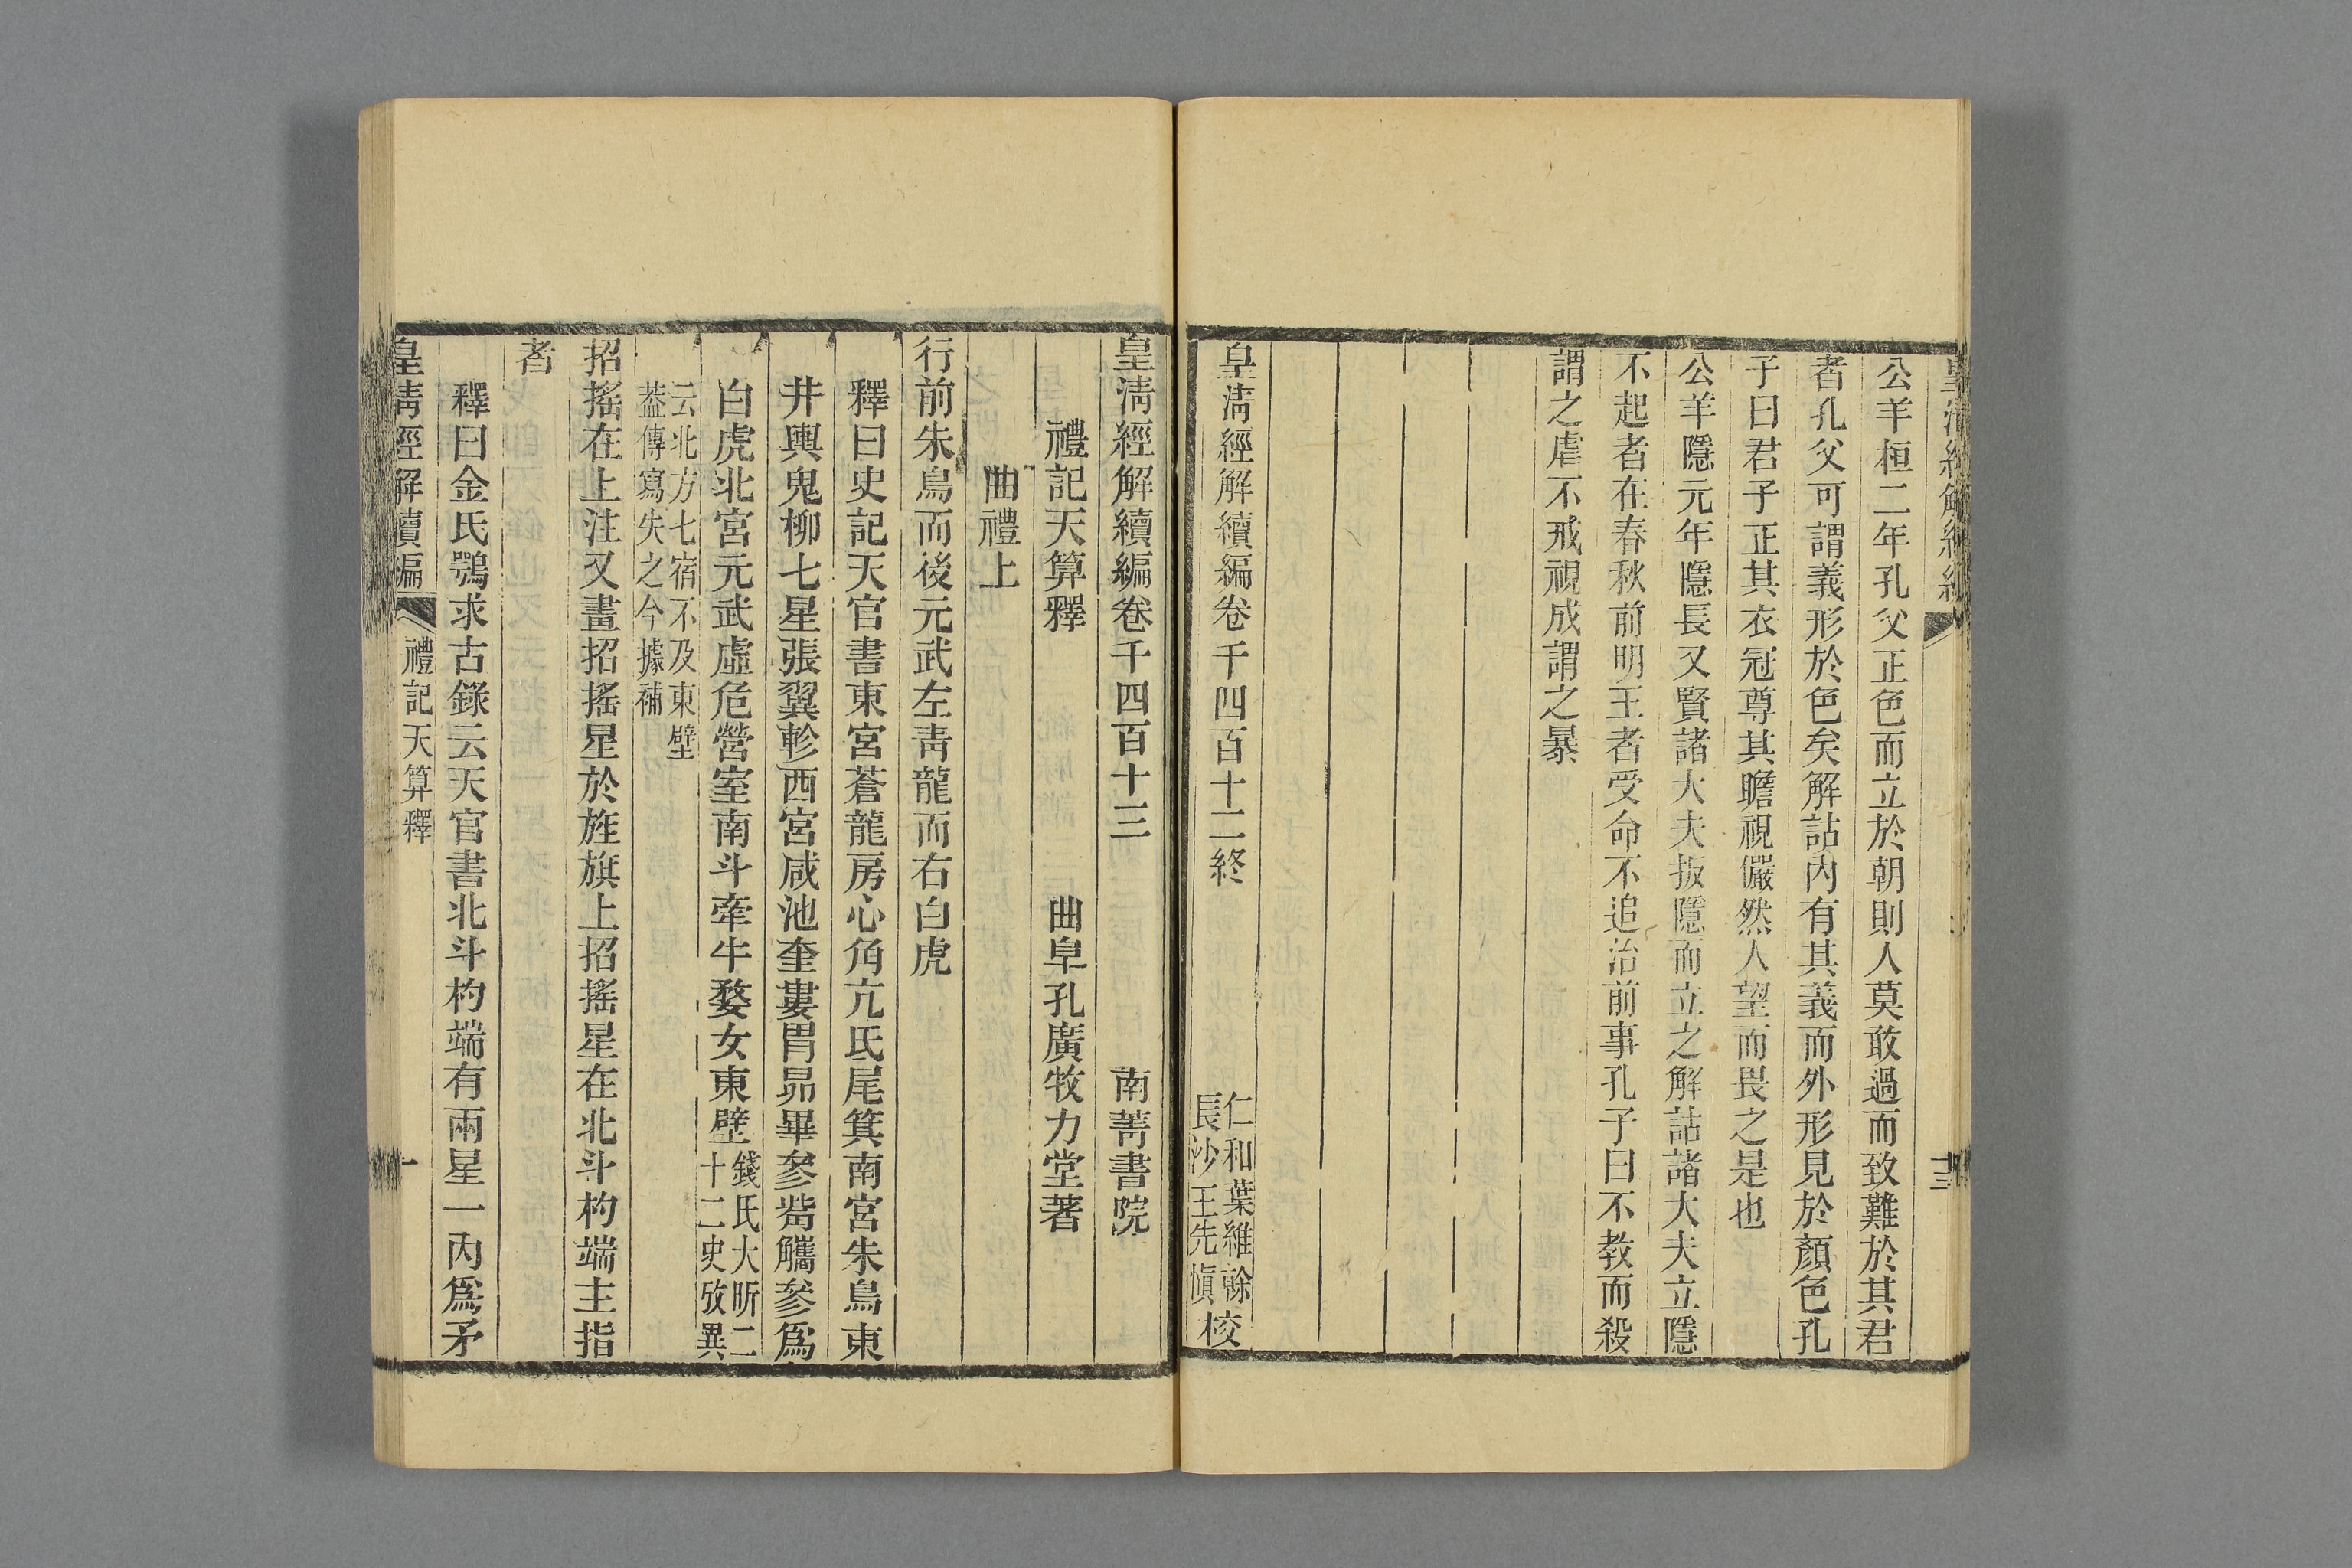 公羊桓二年孔父正色而立於朝則人莫敢過而致難於其君
者孔父可謂義形於色矣解詁內有其義而外形見於顏色孔
子曰君子正其衣冠尊其瞻視儼然人望而畏之是也
公羊隱元年隱長又賢諸大夫扳隱而立之解詁諸大夫立隱
不起者在春秋前明王者受命不追治前事孔子曰不教而殺
謂之虐不戒視成謂之暴
皇淸經解續編卷千四百十二終
仁和葉維榦
長沙王先愼
校
皇淸經解續編卷千四百十三
南菁書院
禮記天算釋
曲阜孔廣牧力堂著
曲禮上
行前朱鳥而後元武左靑龍而右白虎
釋曰史記天官書東宮蒼龍房心角亢氐尾箕南宮朱鳥東
井輿鬼柳七星張翼軫西宮咸池奎婁胃昴畢參觜觿參爲
白虎北宮元武虛危營室南斗牽牛婺女東壁
錢氏大昕二
十二史攷異
云北方七宿不及東壁
葢傳寫失之今據補
招搖在上注又畫招搖星於旌旗上招搖星在北斗杓端主指
者
釋曰金氏鶚求古錄云天官書北斗杓端有兩星一內爲矛
皇淸經解續編
禮記天算釋
一